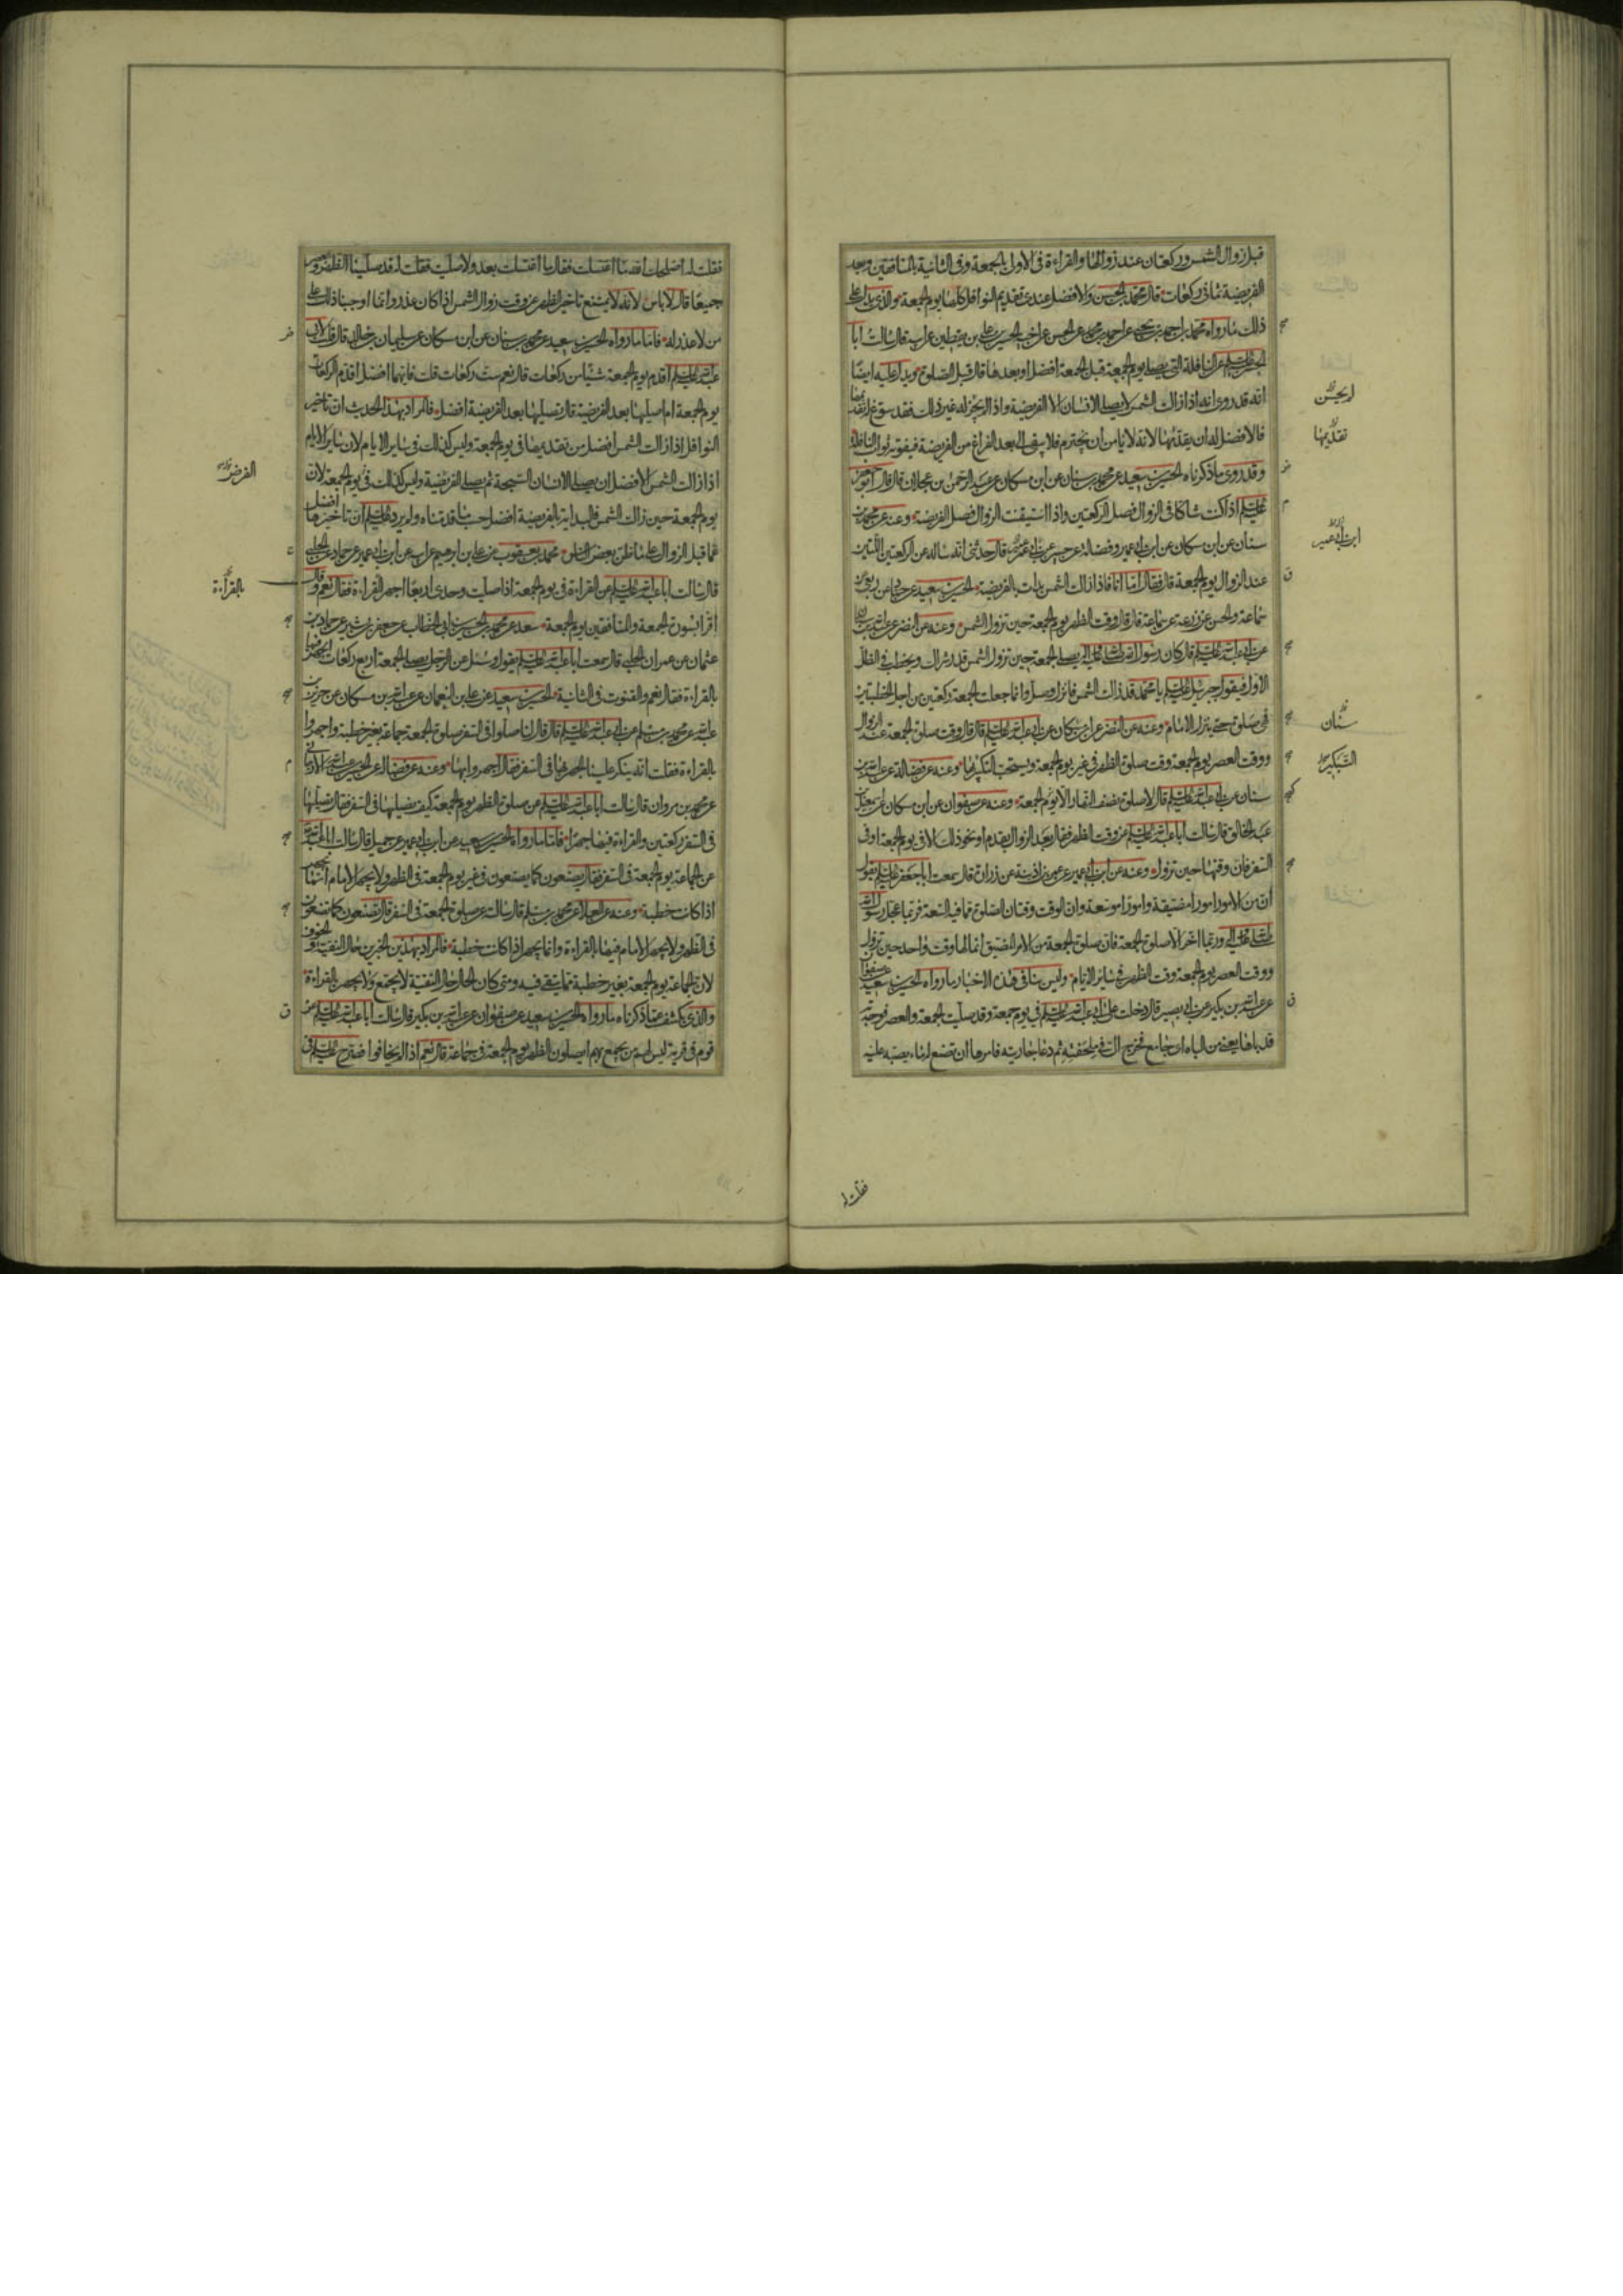 قبل زوال الشمس وركعتان عند زوالها والقراءة فى الاولى بالجمعة وفى الثانية بالمنافقين وبعد
الفريضة ثمان ركعات قال محمد بن الحسن والافضل عندى تقديم النوافل كلها يوم الجمعة والذى يدل على
ذلك ما رواه محمد بن احمد بن يحيى عن احمد بن محمد عن الحسين عن اخيه الحسين عن على بن يقطين عن ابيه قال سالت ابا
الحسن عليه السلام عن النافلة التى تصلى يوم الجمعة قبل الجمعة افضل او بعدها قال قبل الصلوة ويدل عليه ايضا
انه قد روى انه اذا زالت الشمس لا يصلى الانسان الا الفريضة واذا لم يجز له غير ذلك فقد سوغ له تقديمها
فالافضل له ان يقدمها لانه لا يامن ان يخترم فلا يبقى الى بعد الفراغ من الفريضة فيفوته ثواب النافلة
وقد روى ما ذكرناه الحسين بن سعيد عن محمد بن سنان عن ابن مسكان عن عبد الرحمن بن عجلان قال قال ابو جعفر
عليه السلام اذا كنت شاكا فى الزوال فصل الركعتين واذا استيقنت الزوال فصل الفريضة وعنه عن محمد بن
سنان عن ابن مسكان عن ابن ابى عمير وفضالة عن حسين عن ابن ابى عمير قال حدثنى انه ساله عن الركعتين اللتين
عند الزوال يوم الجمعة قال فقال اما انا فاذا زالت الشمس بدات بالفريضة الحسين بن سعيد عن حماد عن ربعى عن
سماعة والحسن عن زرعة عن سماعة قال قال وقت الظهر يوم الجمعة حين تزول الشمس وعنه عن النضر عن عبد الله بن سنان
عن ابى عبد الله عليه السلام قال كان رسول الله صلى الله عليه واله يصلى الجمعة حين تزول الشمس قدر شراك ويخطب فى الظل
الاول فيقول جبرئيل عليه السلام يا محمد قد زالت الشمس فانزل وصل وانما جعلت الجمعة ركعتين من اجل الخطبتين
فهى صلوة حتى ينزل الامام وعنه عن النضر عن ابن مسكان عن ابى عبد الله عليه السلام قال قال وقت صلوة الجمعة عند الزوال
ووقت العصر يوم الجمعة وقت صلوة الظهر فى غير يوم الجمعة ويستحب التكبير بها وعنه عن فضالة عن عبد الله بن
سنان عن ابى عبد الله عليه السلام قال لا صلوة نصف النهار الا يوم الجمعة وعنه عن صفوان عن ابن مسكان عن اسمعيل بن
عبد الخالق قال سالت ابا عبد الله عليه السلام عن وقت الظهر فقال بعد الزوال بقدم او نحو ذلك الا فى يوم الجمعة او فى
السفر فان وقتها حين تزول وعنه عن ابن ابى عمير عن عمر بن اذينة عن زرارة قال سمعت ابا جعفر عليه السلام يقول
ان من الامور امورا مضيقة وامورا موسعة وان الوقت وقتان الصلوة مما فيه السعة فربما عجل رسول الله
صلى الله عليه واله وربما اخر الا صلوة الجمعة فان صلوة الجمعة من الامر المضيق انما لها وقت واحد حين تزول
ووقت العصر يوم الجمعة وقت الظهر فى سائر الايام وليس ينافى هذه الاخبار ما رواه الحسين بن سعيد عن صفوان
عن عبد الله بن بكير عن ابى بصير قال دخلت على ابى عبد الله عليه السلام فى يوم جمعة وقد صليت الجمعة والعصر فوجدته
قد باها يعنى من الباه اى جامع فخرج الى فى ملحفته ثم دعا بجاريته فامرها ان تضع له ماء يصبه عليه
تقديمها
ابن ابى عمير
سنان
التبكير
فقلت له
فقلت له اصلحك الله ما اغتسلت فقال ما اغتسلت بعد ولا صليت فقلت له قد صلينا الظهر والعصر
جميعا قال لا باس لانه لا يمتنع تاخير الظهر عن وقت زوال الشمس اذا كان عذر وانما اوجبنا ذلك على
من لا عذر له فاما ما رواه الحسين بن سعيد عن محمد بن سنان عن ابن مسكان عن سليمان بن خالد قال قلت لابى
عبد الله عليه السلام اقدم يوم الجمعة شيئا من ركعات قال نعم ست ركعات قلت فايهما افضل اقدم الركعات
يوم الجمعة ام اصليها بعد الفريضة قال تصليها بعد الفريضة افضل فالمراد بهذا الحديث ان تاخير
النوافل اذا زالت الشمس افضل من تقديمها فى يوم الجمعة وليس كذلك فى سائر الايام لان سائر الايام
اذا زالت الشمس الافضل ان يصلى الانسان السبحة ثم يصلى الفريضة وليس كذلك فى يوم الجمعة لان
يوم الجمعة حين زالت الشمس فالبداية بالفريضة افضل حسب ما قدمناه ولم يرد عليه السلام ان تاخيرها افضل
مما قبل الزوال على ما ظن بعض الناس محمد بن يعقوب عن على بن ابراهيم عن ابيه عن ابن ابى عمير عن حماد عن الحلبى
قال سالت ابا عبد الله عليه السلام عن القراءة فى يوم الجمعة اذا صليت وحدى اربعا اجهر بالقراءة فقال نعم وقال
اقرا بسورة الجمعة والمنافقين يوم الجمعة سعد عن محمد بن الحسين بن ابى الخطاب عن جعفر بن بشير عن حماد بن
عثمان عن عمران الحلبى قال سمعت ابا عبد الله عليه السلام يقول وسئل عن الرجل يصلى الجمعة اربع ركعات ايجهر فيها
بالقراءة فقال نعم والقنوت فى الثانية الحسين بن سعيد عن على بن النعمان عن عبد الله بن مسكان عن حريز بن
عبد الله عن محمد بن مسلم عن ابى عبد الله عليه السلام قال قال لنا صلوا فى السفر صلوة الجمعة جماعة بغير خطبة واجهروا
بالقراءة فقلت انه ينكر علينا الجهر بها فى السفر فقال اجهروا بها وعنه عن فضالة عن الحسين بن عبد الله الارجانى
عن محمد بن مروان قال سالت ابا عبد الله عليه السلام عن صلوة الظهر يوم الجمعة كيف نصليها فى السفر فقال تصليها
فى السفر ركعتين والقراءة فيها جهرا فاما ما رواه الحسين بن سعيد عن ابن ابى عمير عن جميل قال سالت ابا عبد الله
عن الجماعة يوم الجمعة فى السفر فقال يصنعون كما يصنعون فى غير يوم الجمعة فى الظهر ولا يجهر الامام انما يجهر
اذا كانت خطبة وعنه عن العلا عن محمد بن مسلم قال سالته عن صلوة الجمعة فى السفر قال تصنعون كما تصنعون
فى الظهر ولا يجهر الامام فيها بالقراءة وانما يجهر اذا كانت خطبة فالمراد بهذين الخبرين حال التقية والخوف
لان الجماعة يوم الجمعة بغير خطبة مما يتقى فيه ومتى كان الحال حال التقية لا يجتمع ولا يجهر بالقراءة
والذى يكشف عما ذكرناه ما رواه الحسين بن سعيد عن صفوان عن عبد الله بن بكير قال سالت ابا عبد الله عليه السلام عن
قوم فى قرية ليس لهم من يجمع بهم ايصلون الظهر يوم الجمعة فى جماعة قال نعم اذا لم يخافوا فصرح عليه السلام فى
الفرض
بالقراءة